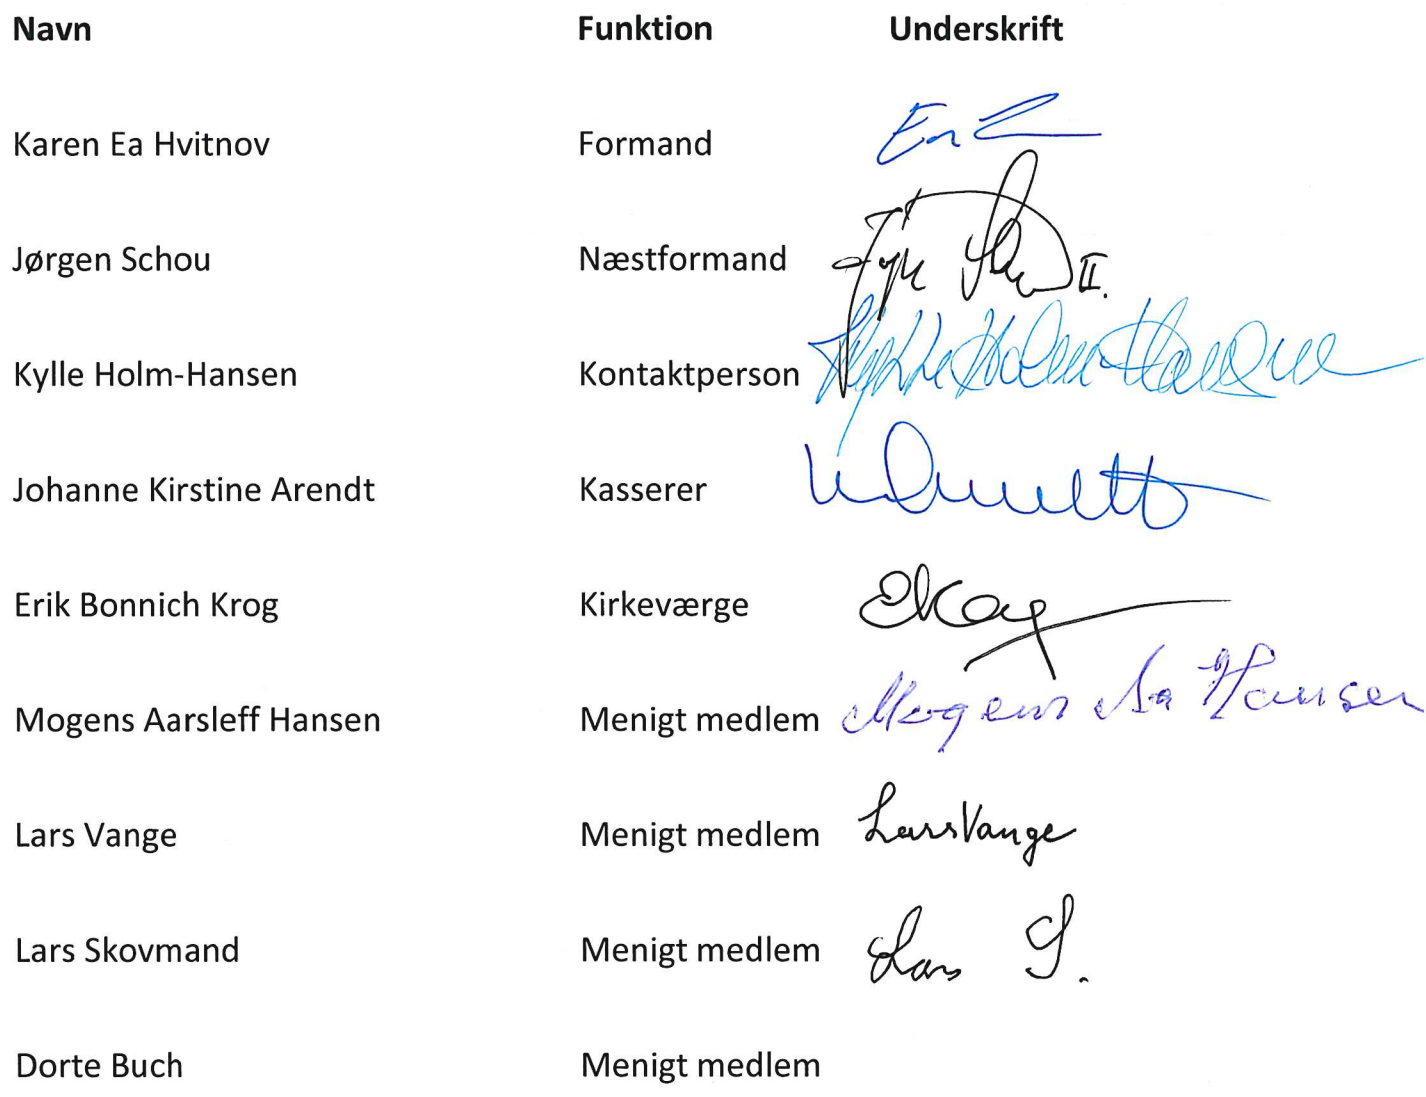 Navn Funktion Underskrift
Karen Ea Hvitnov Formand
Jørgen Schou Næstformand II.
Kylle Holm-Hansen Kontaktperson Holm-Hansen
Johanne Kirstine Arendt Kasserer
Erik Bonnich Krog Kirkeværge EKrog
Mogens Aarsleff Hansen Menigt medlem Mogens Aa Hansen
Lars Vange Menigt medlem Lars Vange
Lars Skovmand Menigt medlem Lars S.
Dorte Buch Menigt medlem